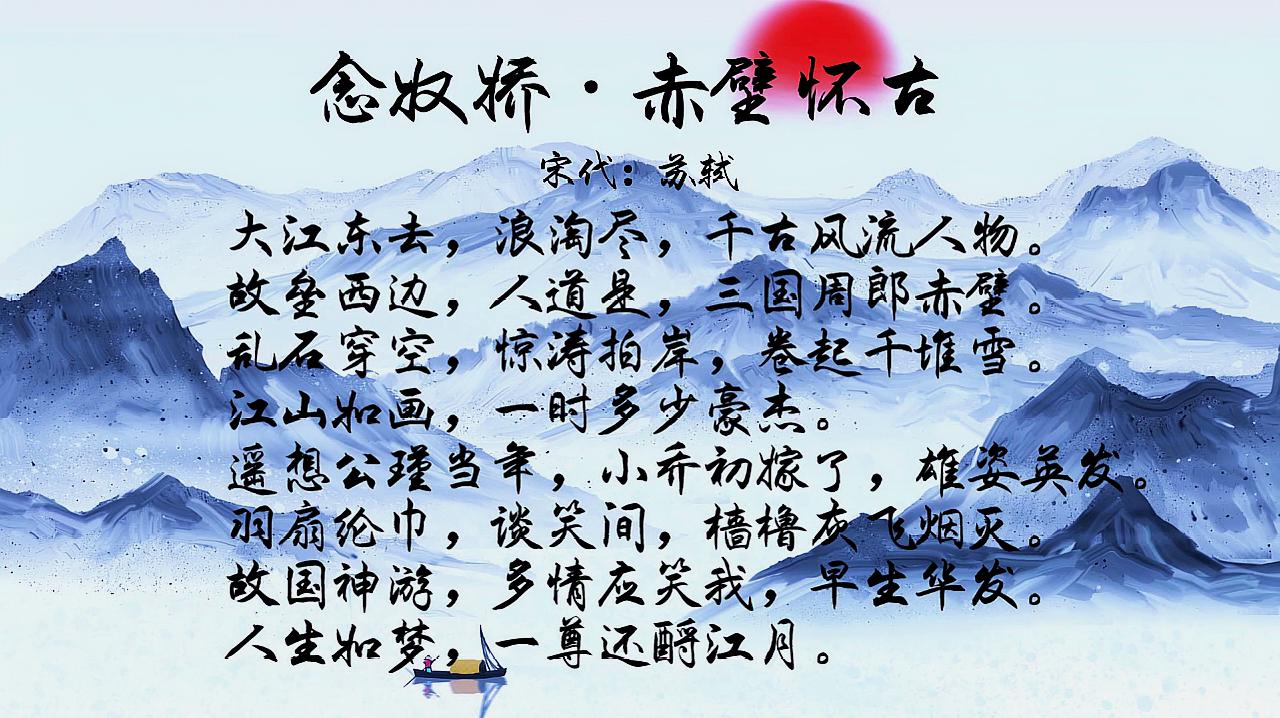 念奴娇·赤壁怀古
宋代：苏轼
大江东去，浪淘尽，千古风流人物。
故垒西边，人道是，三国周郎赤壁。
乱石穿空，惊涛拍岸，卷起千堆雪。
江山如画，一时多少豪杰。
遥想公瑾当年，小乔初嫁了，雄姿英发。
羽扇纶巾，谈笑间，樯橹灰飞烟灭。
故国神游，多情应笑我，早生华发。
人生如梦，一尊还酹江月。